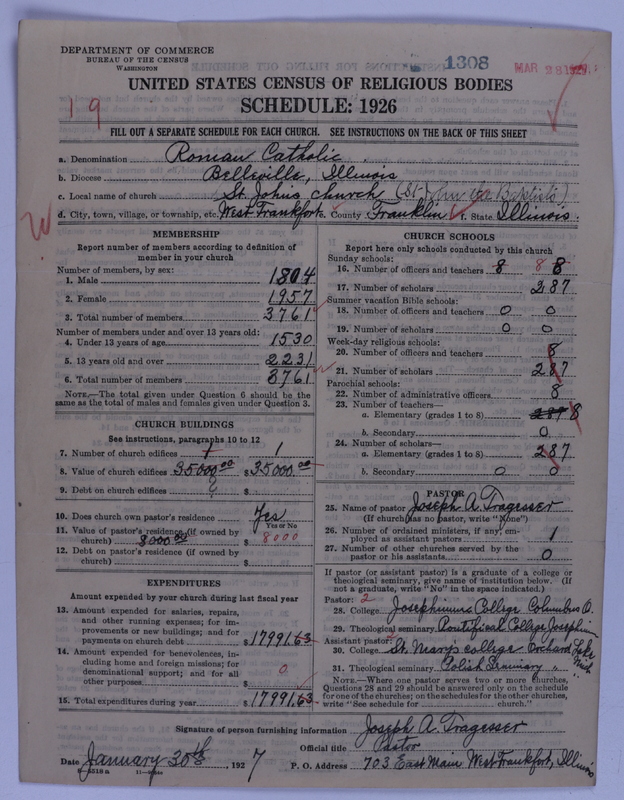 DEPARTMENT OF COMMERCE
BUREAU OF THE CENSUS
WASHINGTON
1308
MAR 28 1927
UNITED STATES CENSUS OF RELIGIOUS BODIES
SCHEDULE: 1926
19
FILL OUT A SEPARATE SCHEDULE FOR EACH CHURCH. SEE INSTRUCTIONS ON THE BACK OF THIS SHEET
a. Denomination Roman Catholic
b. Diocese Belleville, Illinois
c. Local name of church St. John's church (St. John the Baptist)
d. City, town, village, or township, etc. West Frankfort e. County Franklin f. State Illinois
MEMBERSHIP
Report number of members according to definition of
member in your church
Number of members, by sex:
1. Male 1804
2. Female 1957
3. Total number of members 3761
Number of members under and over 13 years old:
4. Under 13 years of age 1530
5. 13 years old and over 2231
6. Total number of members 3761
NOTE.—The total given under Question 6 should be the
same as the total of males and females given under Question 3.
CHURCH BUILDINGS
See instructions, paragraphs 10 to 12
7. Number of church edifices 1 1
8. Value of church edifices 35000.00 $35000.00
9. Debt on church edifices
10. Does church own pastor's residence Yes
Yes or No
11. Value of pastor's residence (if owned by
church) 8000.00 $8000
12. Debt on pastor's residence (if owned by
church) $
EXPENDITURES
Amount expended by your church during last fiscal year
13. Amount expended for salaries, repairs,
and other running expenses; for im-
provements or new buildings; and for
payments on church debt $17991.63
14. Amount expended for benevolences, in-
cluding home and foreign missions; for
denominational support; and for all
other purposes $ 0
15. Total expenditures during year $17991.63
CHURCH SCHOOLS
Report here only schools conducted by this church
Sunday schools:
16. Number of officers and teachers 8 8 8
17. Number of scholars 287
Summer vacation Bible schools:
18. Number of officers and teachers 0 0
19. Number of scholars 0 0
Week-day religious schools:
20. Number of officers and teachers 8
21. Number of scholars 287
Parochial schools:
22. Number of administrative officers 8
23. Number of teachers—
a. Elementary (grades 1 to 8) 287 8
b. Secondary 0
24. Number of scholars—
a. Elementary (grades 1 to 8) 287
b. Secondary 0 0
PASTOR
25. Name of pastor Joseph A. Tragesser
(If church has no pastor, write "None")
26. Number of ordained ministers, if any, em-
ployed as assistant pastors 1
27. Number of other churches served by the
pastor or his assistants 0
If pastor (or assistant pastor) is a graduate of a college or
theological seminary, give name of institution below. (If
not a graduate, write "No" in the space indicated.)
Pastor: 2
28. College Josephinum College Columbus O.
29. Theological seminary Pontifical College Josephin
Assistant pastor:
30. College St. Marys college Orchard Lake Mich
31. Theological seminary Polish Seminary " "
NOTE.—Where one pastor serves two or more churches,
Questions 28 and 29 should be answered only on the schedule
for one of the churches; on schedules for the other churches,
write "See schedule for church."
Signature of person furnishing information Joseph A. Tragesser
Official title Pastor
Date January 30th, 1927 P. O. Address 703 East Main West Frankfort, Illinois